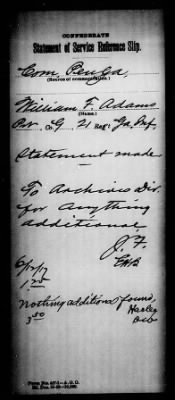 CONFEDERATE
Statement of Service Reference Slip.
Com Pen Ga
(Source of communication.)
William F. Adams
(Name.)
Pvt. Co. G 21 Reg't Ga. Inf.
Statement made
To Archives Div.
for anything
additional.
J. F.
EWB
Nothing additional found,